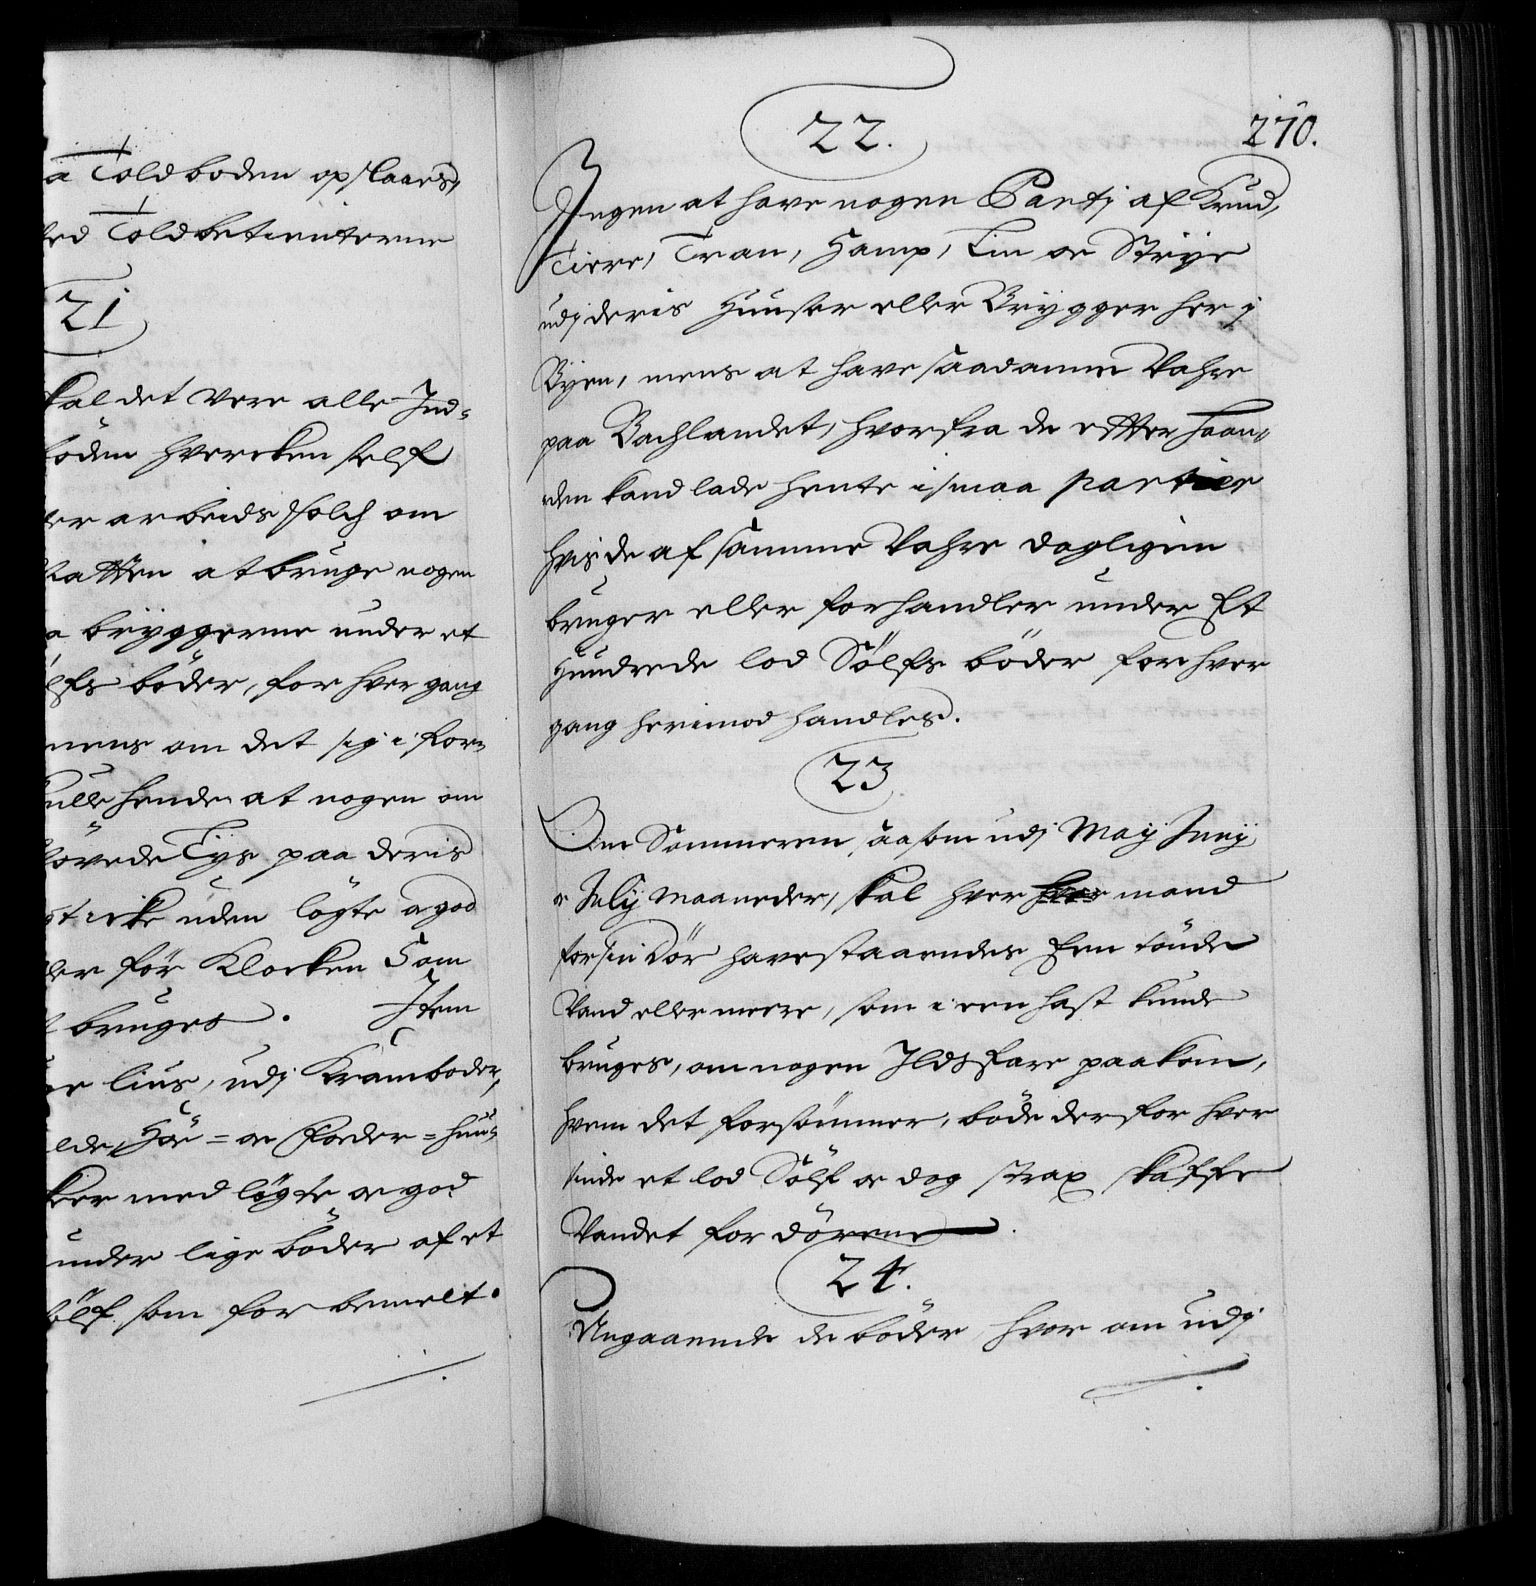 a Toldboden opslaaes,
ved Toldbetienterne
21
kal det vere alle Ind-
böden hvercken self
ler arbeids folch om
Natten at bruge nogen
a bryggerne under et
ölfs böder, for hver gang
mens om det sig i for-
ulle hende at nogen om
Lys paa deris
stecke uden lögte a god
ler för Klocken 5 om
bruges. Item
ge lius, udj Kramboder,
lde, Höe = oc Foeder = huu-
ker med lögte oc god
under lige böder af et
ölf som for bemelt.
270.
22.
Ingen at have nogen Partj af Krud,
Tiere, Tran, Hamp, Lin oc Strye
udj deris Huuser eller Brygger her j
Byen, mens at have saadanne Vahre
paa Bachlandet, hvorfra de efter haan-
den kand lade hente i smaa partier
hvis de af samme Vahre dagligen
bruger eller forhandler under Et
Hundrede lod Sölfs böder for hver
gang herimod handles.
23
Om Sommeren, saasom udj Maij Junij
oc Julij maaneder, skal hver mand
for sin Dör have staaendes Een tönde
Vand eller meere, som i een hast kunde
bruges, om nogen Ildsfare paakom,
hvem det forsömmer, böde derfor hver
sinde et lod Sölf oc dog strax skaffe
Vandet for dörene.
24.
Angaaende de böder hvor om udj